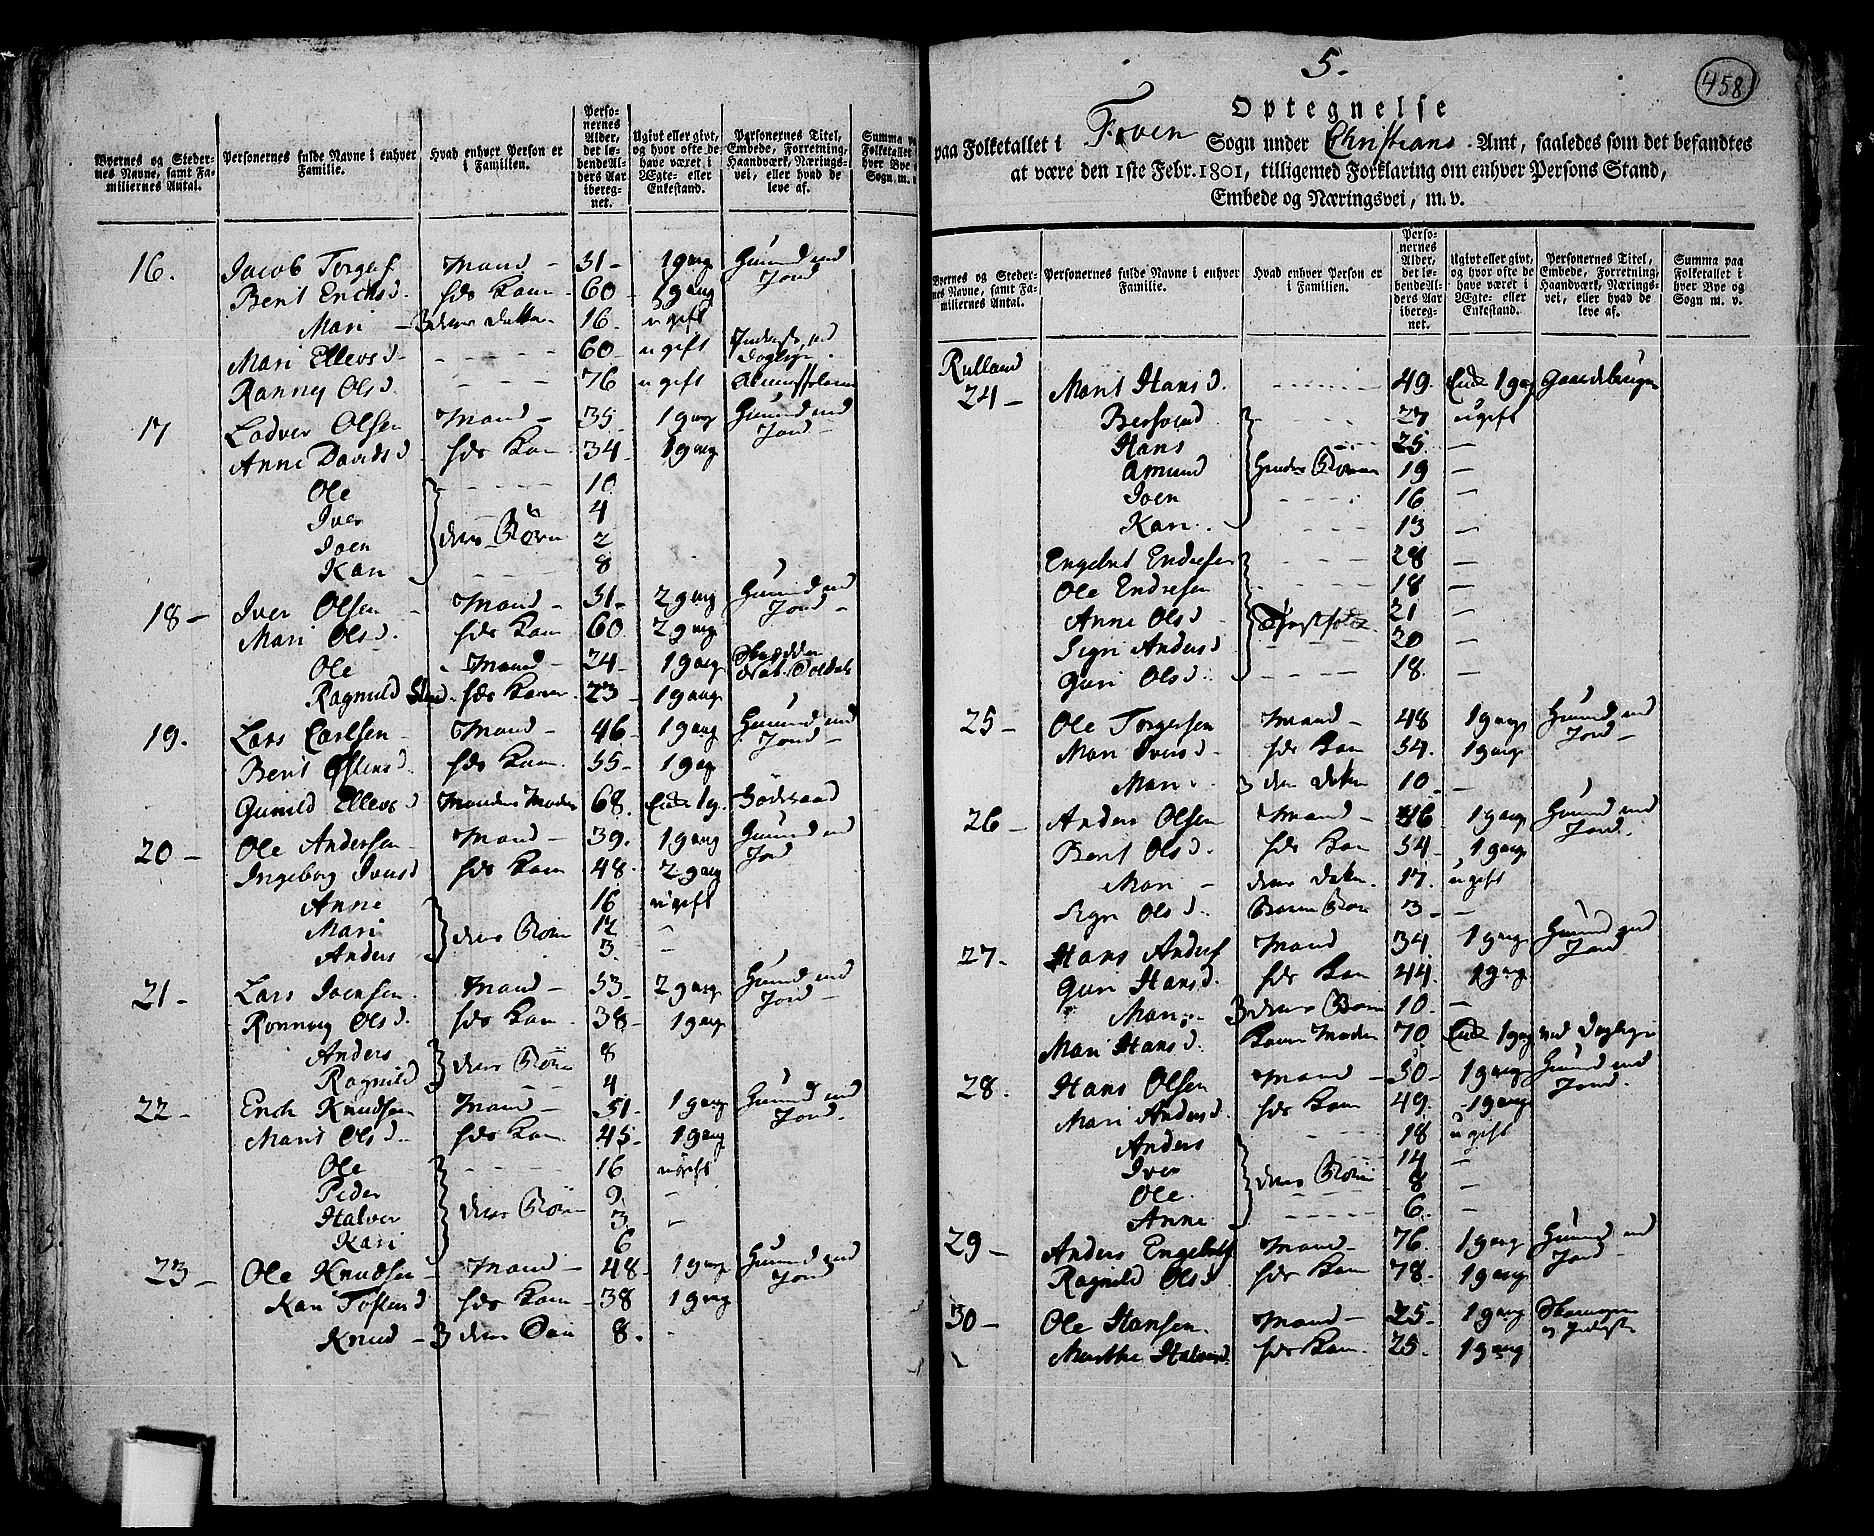 Byernes og Steder-
nes Navne, samt Fa-
miliernes Antal.
Personernes fulde Navne i enhver
Familie.
Hvad enhver Person er
i Familien.
Perso-
nernes
Alder,
det lø-
bende Al-
ders Aar
ibereg-
net.
Ugivt eller givt,
og hvor ofte de
have været i
Ægte- eller
Enkestand.
Personernes Titel,
Embede, Forretning,
Haandværk, Nærings-
vei, eller hvad de
leve af.
Summa paa
Folketallet i
hver Bye og
Sogn m. v.
16. Jacob Torgers Mand - 51 - 1 gang Huusmand med Jord
Berit Erichsd. hds Kone - 60 - 1 gang
Mari - deres datter 16. ugift
Mari Ellevsd - - - - 60 - ugift
Ranney Olsd. - - - - 76 ugift
17 Lodver Olsen Mand - 35 1 gang Huusmand med Jord -
Anne Davidsd hds Kone - 34 - 1 gang
Ole - - - - 10
Iver 4
Joen deres Børn 2
Kari - - - - 8
18 - Iver Olsen - Mand - 51 - 2 gang Huusmand med Jord -
Mari Olsd. hds Kone 60 2 gang
Ole - Mand - 24 - 1 gang
Ragnild hds Kone - 23 - 1 gang
19. Lars Carlsen - Mand - 46 - 1 gang Huusmand med Jord -
Berit Ostensd. hds Kone. 55 - 1 gang
Gunild Ellevsd Mandens Moder 68. Enke 1 g.
20 - Ole Andersen - Mand - 39. 1 gang Huusmand med Jord
Ingeborg Iversd hds Kone 48. 2 gang
Anne 16 ugift
Mari deres Børn 12 -
Anders 3. -
21 - Lars Joensen. Mand - 53 - 2 gang Huusmand med Jord -
Ronney Olsd. hds Kone. 38 - 1 gang
Anders deres Børn 8
Ragnild - - 4
22 - Erich Knudsen Mand - 51. 1 gang Huusmand med Jord.
Marit Olsd. hds Kone 45 - 1 gang
Ole - - - - 16 ugift
Peder 9. -
Halver deres Børn 3. -
Kari 6
23 - Ole Knudsen - Mand - 48 - 1 gang Huusmand med Jord
Kari Tostensd hds Kone - 38 1 gang
Knud - deres Søn 8. -
5.
458
Optegnelse
paa Folketallet i Froen Sogn under Christians Amt, saaledes som det befandtes
at være den 1ste Febr. 1801, tilligemed Forklaring om enhver Persons Stand,
Embede og Næringsvei, m. v.
Byernes og Steder-
nes Navne, samt Fa-
miliernes Antal.
Personernes fulde Navne i enhver
Familie.
Hvad enhver Person er
i Familien.
Perso-
nernes
Alder,
det lø-
bende Al-
ders Aar
ibereg-
net.
Ugivt eller givt,
og hvor ofte de
have været i
Ægte- eller
Enkestand.
Personernes Titel,
Embede, Forretning,
Haandværk, Nærings-
vei, eller hvad de
leve af.
Summa paa
Folketallet i
hver Bye og
Sogn m. v.
Rulland
24 - Marit Hansd. - - - - 49. Enke 1 gang Gaardbruger
Bersvend - - - 27 ugift
Hans 25. -
Amund hendes Børn 19 -
Joen - - - 16 -
Kari. - - - - 13 -
Engebret Endresen - - - - 28 -
Ole Endresen - - - - 18. -
Anne Olsd. 21 -
Sigri Andersd Tienestefolk 20 -
Guri Olsd. - - - - 18. -
25 - Ole Torgersen Mand - 48 1 gang Huusmand med Jord -
Mari Iversd - hds Kone 54. 1 gang
Mari. deres datter 10. -
26 - Anders Olsen Mand - 46 1 gang Huusmand med Jord.
Berit Olsd. hds Kone 54 - 1 gang
Mari - deres datter. 17. ugift
Sigri Olsd. 3 - -
27. - Hans Anders Mand 34. 1 gang Huusmand med Jord.
Guri Hansd. hds Kone 44. 1 gang
Mari - deres Barn 10. -
Mari Hansd. Konens Moder 70 Enke 1 gang
28. Hans Olsen Mand - 50 - 1 gang Huusmand med Jord.
Mari Andersd. hds Kone 49. - 1 gang
Anders - - - 18 ugift
Iver deres Børn 14 -
Ole. 8 -
Anne - - - - 6. -
29 - Anders Engebrets Mand - 76. 1 gang Huusmand med Jord -
Ragnild Olsd. hds Kone 78. 1 gang
30 - Ole Hansen. Mand - 25. - 1 gang
Marthe Halversd. hds Kone. 25. 1 gang